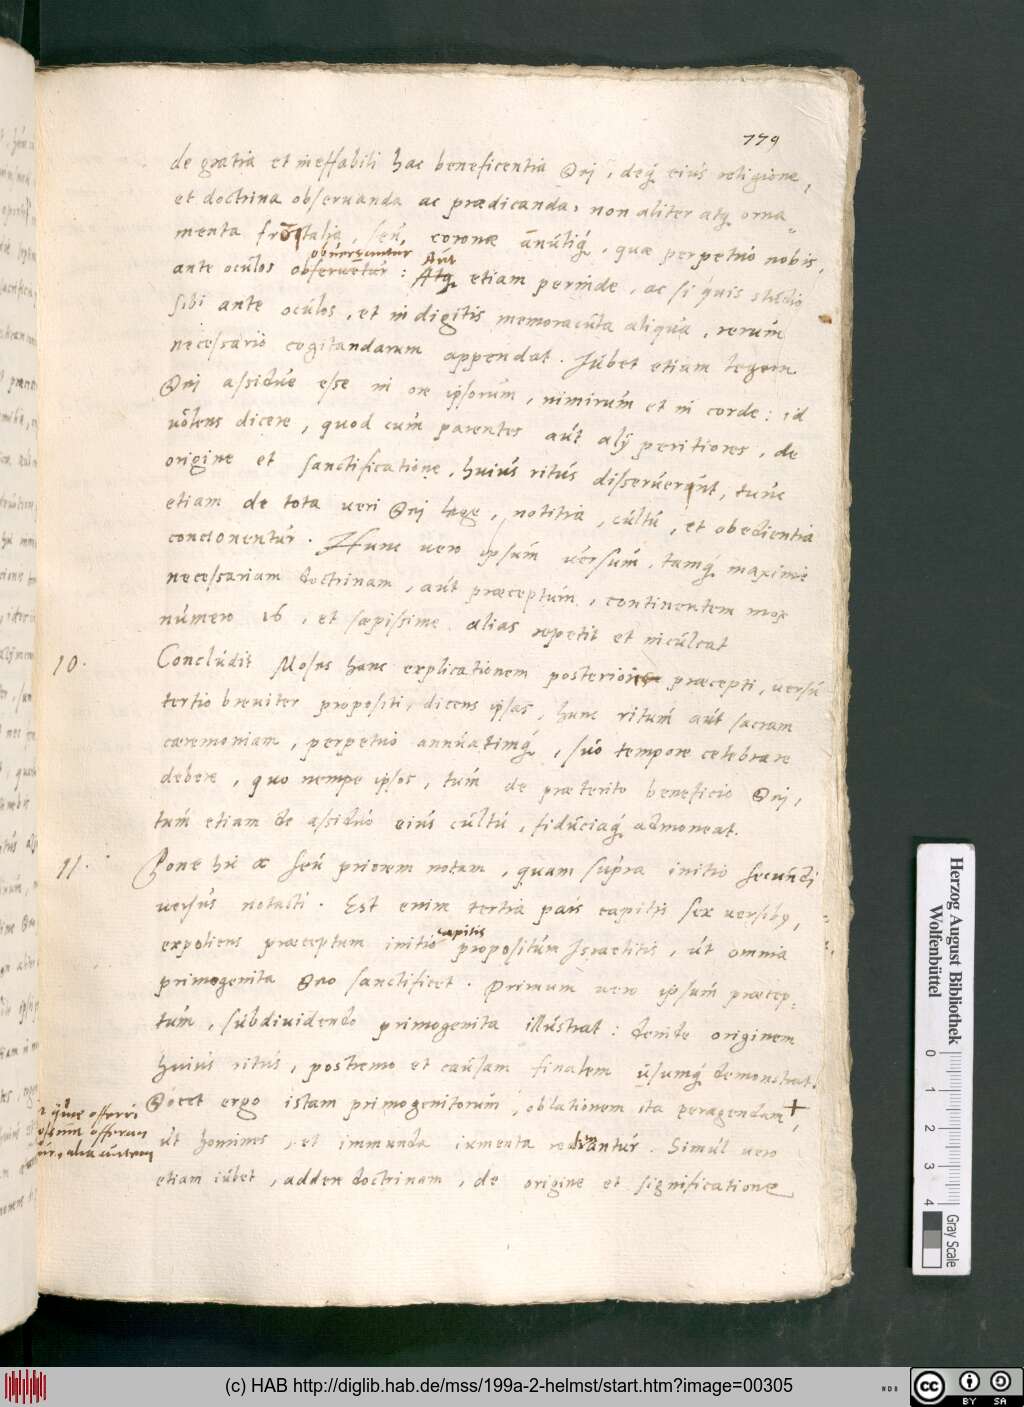 779
de gratia et ineffabili hac beneficentia Dei, deq́ eius religione,
et doctrina obseruanda ac prædicanda, non aliter atq́ orna=
menta frōtalia, seu, coronæ añuliq́, quæ perpetuo nobis,
obuersantur Aut
ante oculos obseruētur: Atq́ etiam perinde, ac si quis studio
sibi ante oculos, et in digitis memoracula aliqua, rerum
necessario cogitandarum appendat. Jubet etiam legem
Dei assidue esse in ore ipsorum, nimirum et in corde: id
uolens dicere, quod cum parentes aut alij peritiores, de
origine et sanctificatione, huius ritus disseruerunt, tunc
etiam de tota ueri Dei lege, notitia, cultu, et obedientia
concionentur. Hunc uero ipsum uersum, tamq́ maxime
necessariam doctrinam, aut præceptum, continentem mox
numero 16, et sæpissime alias repetit et inculcat
10. Concludit Moses hanc explicationem posterioris præcepti, uersu
tertio breuiter propositi, dicens ipsas, hunc ritum aut sacram
cæremoniam, perpetuo annuatimq́, suo tempore celebrare
debere, quo nempe ipsos, tum de præterito beneficio Dei,
tum etiam de assiduo eius cultu, fiduciaq́ admoneat.
11. Pone hri æ seu priorem notam, quam supra initio secundi
uersus notasti. Est enim tertia pars capitis sex uersibus,
capitis
expoliens præceptum initio propositum Israelitis, ut omnia
primogenita Deo sanctificet. Primum uero ipsum præcep=
tum, subdiuidendo primogenita illustrat: deinde originem
huius ritus, postremo et causam finalem usumq́ demonstrat.
Docet ergo istam primogenitorum, oblationem ita peragendam +,
quæ offerri
offeran
alia autem
ut homines, et immunda iumenta redimantur. Simul uero
etiam iubet, addere doctrinam, de origine et significatione
Herzog August Bibliothek
Wolfenbüttel
0 1 2 3 4
Gray Scale
(c) HAB http://diglib.hab.de/mss/199a-2-helmst/start.htm?image=00305
NDB
cc BY SA